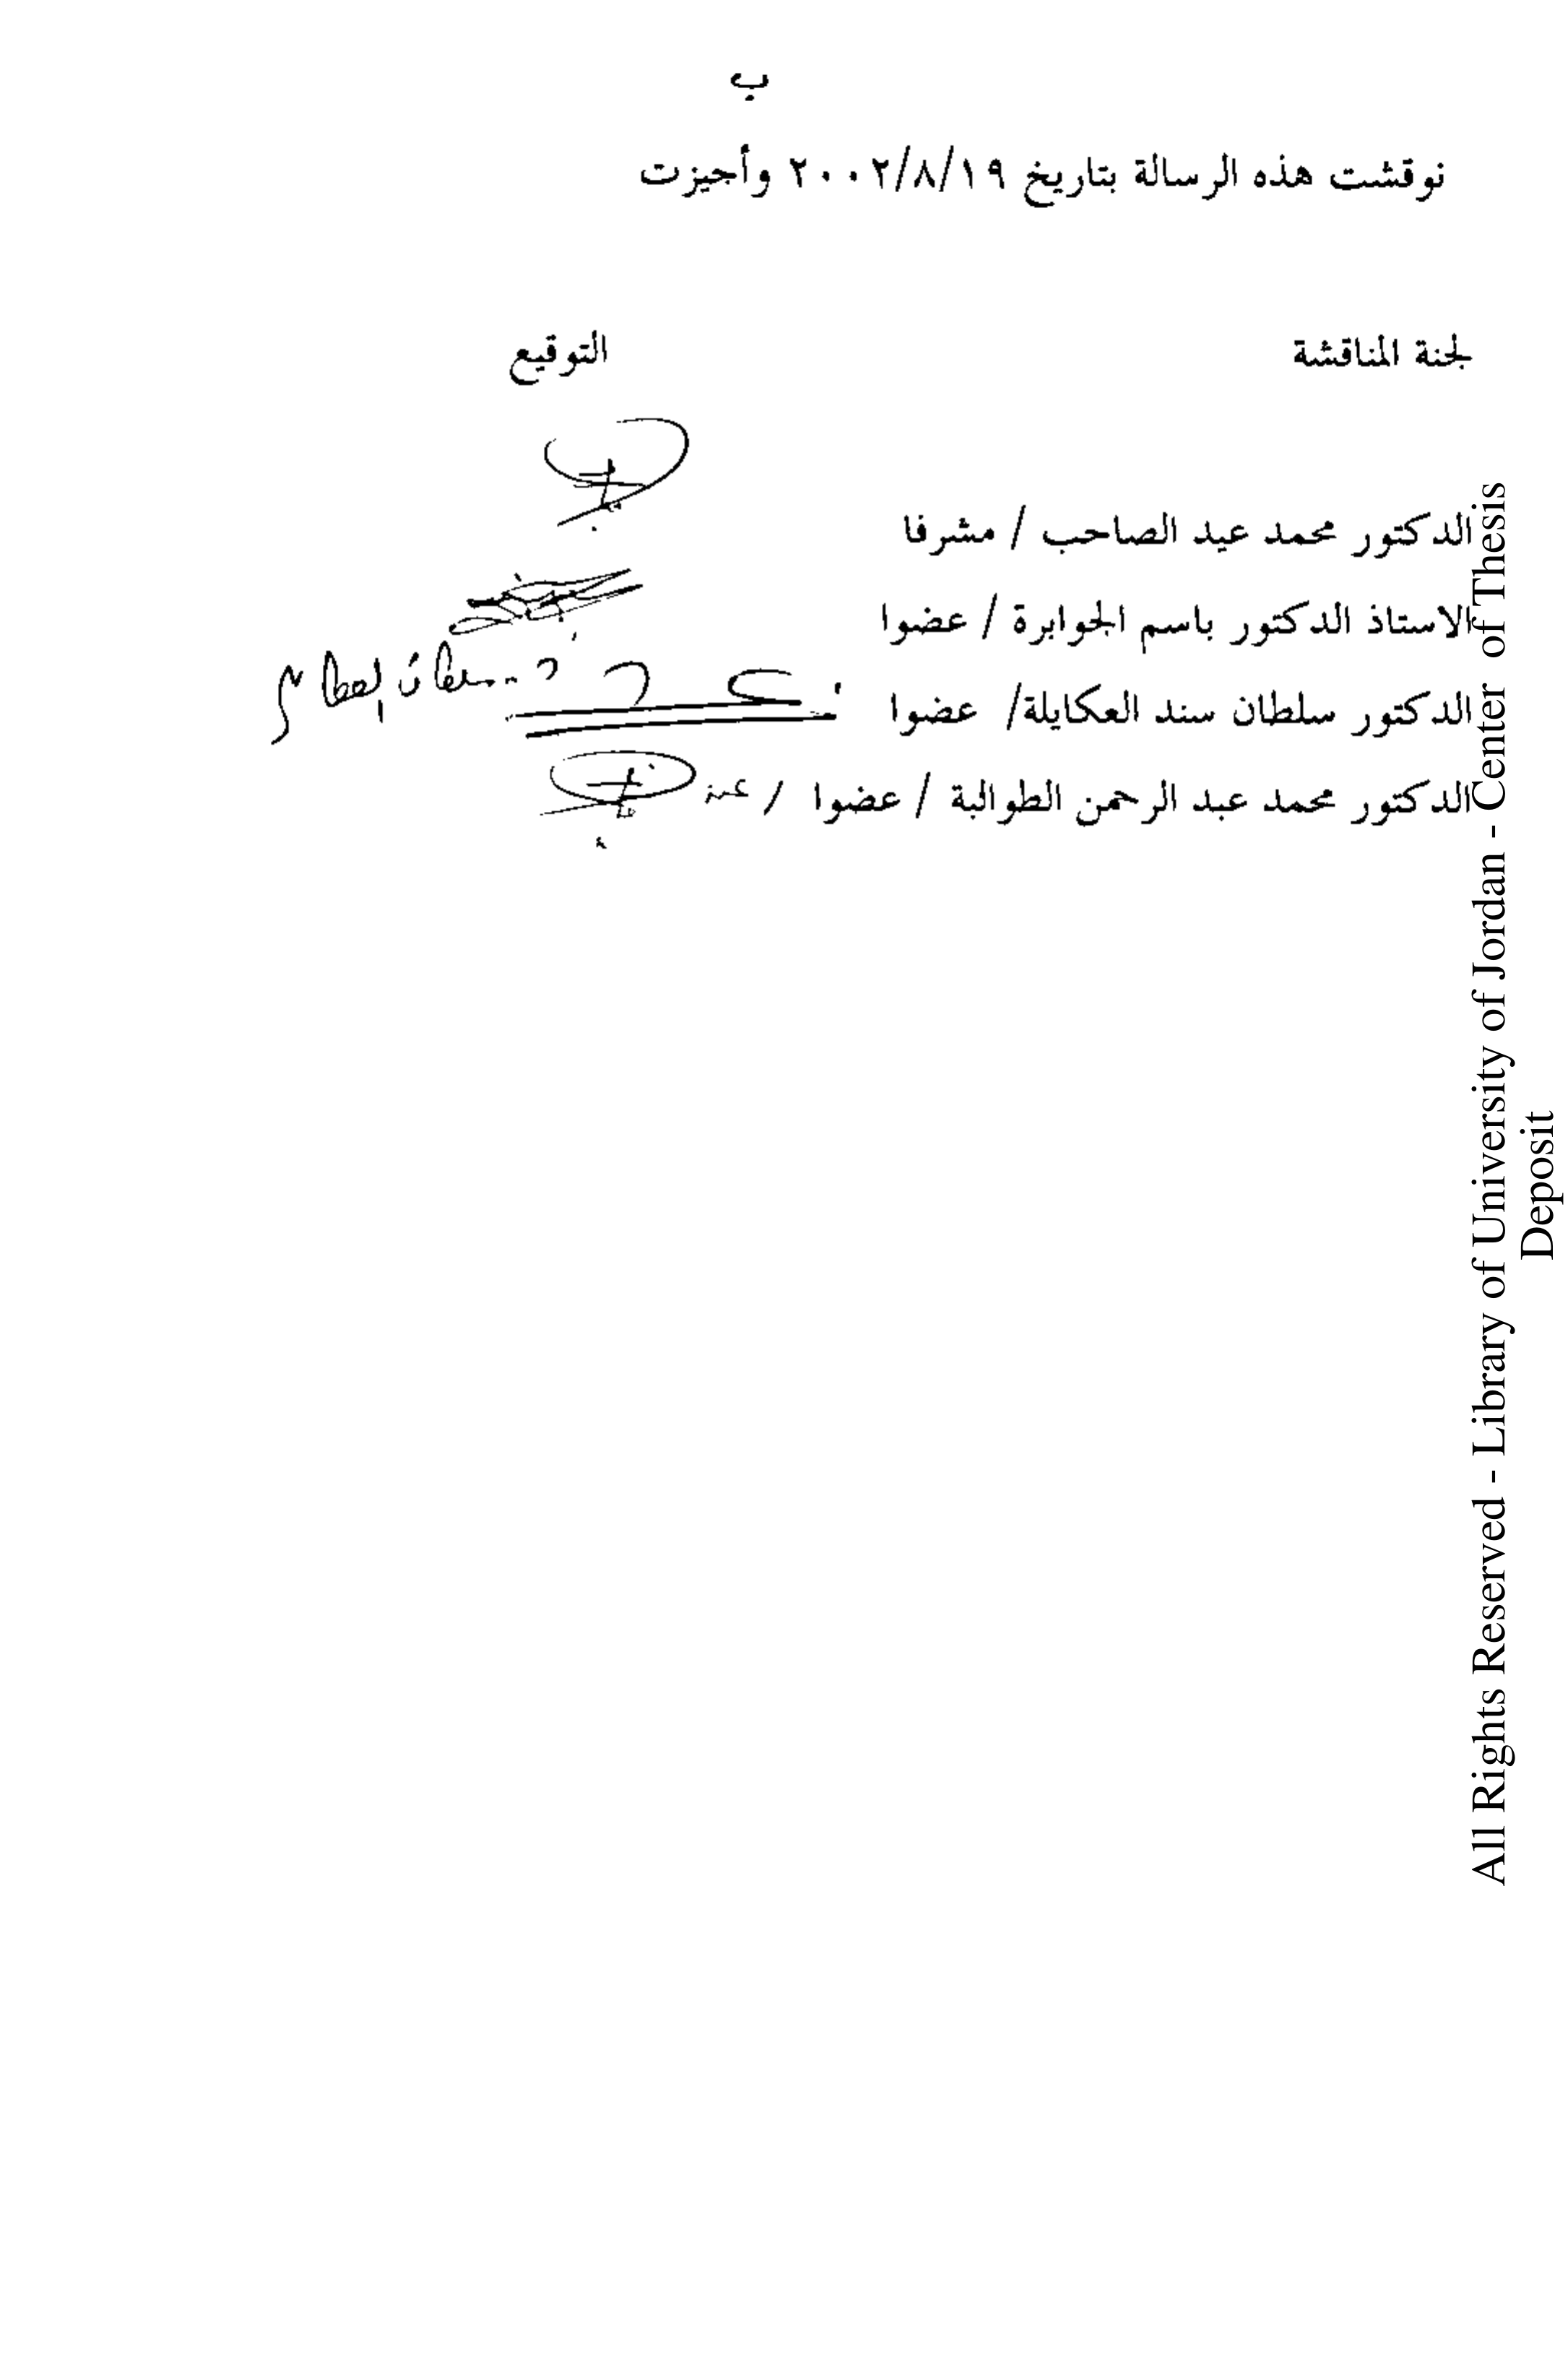 ب
نوقشت هذه الرسالة بتاريخ ٢٠٠٢/٨/١٩ وأجيزت
لجنة المناقشة التوقيع
الدكتور محمد عيد الصاحب / مشرفا
الاستاذ الدكتور باسم الجوابرة / عضوا
الدكتور سلطان سند العكايلة/ عضوا
الدكتور محمد عبد الرحمن الطوالبة / عضوا / عنه
All Rights Reserved - Library of University of Jordan - Center of Thesis
Deposit